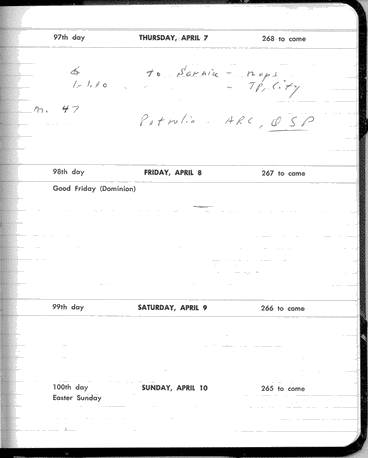 97th day THURSDAY, APRIL 7 268 to come
to Sarnia - maps
- TP, City
M. 47
Petrolia - ARC, OSP
98th day FRIDAY, APRIL 8 267 to come
Good Friday (Dominion)
99th day SATURDAY, APRIL 9 266 to come
100th day SUNDAY, APRIL 10 265 to come
Easter Sunday